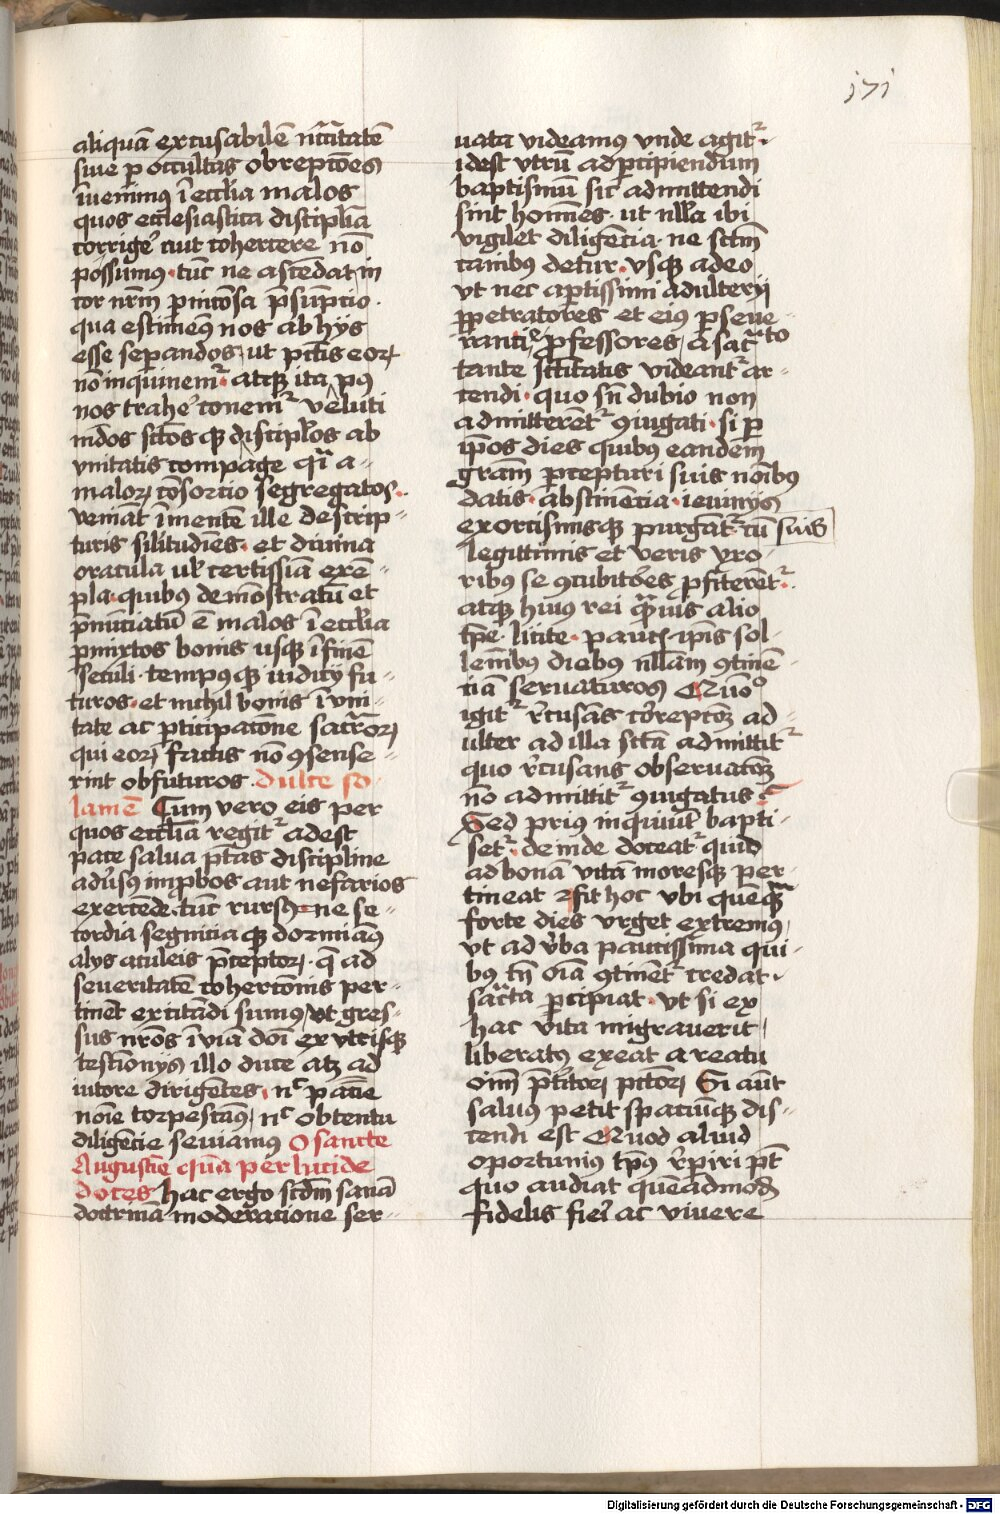 171
aliquā excusabilē ncc̄itatē
siue p occultas obreptōes
īuenimus ī eccl̄ia malos
quos ecclesiastica disciplīa
corrige᷑ aut cohercere nō
possumus · tūc ne ascēdat in
cor nr̄m pnicōsa p̄sūptio ·
qua estimem9 nos ab hys
esse sepandos, ut pcc̄tis eoꝝ
nō inquinem᷑ · atqꝫ ita p9
nos trahe᷑ conem᷑ veluti
mūdos sctōs qꝫ discipl̄os ab
vnitatis compage qͥ a -
maloꝝ cōsorcio segregatos.
veniāt ī mente ille de scrip -
turis silitudīes · et diuina
oracula ul̓ certissīa exē -
pla · quibus demōstratū et
p̄nūciatū ē malos ī eccl̄ia
pmixtos bonis usqꝫ ī finē
seculi · tempusqꝫ iudicy fu -
turos · et nichil bonis ī vni -
tate ac pticipatōne sacr̄oꝝ
qui eoꝝ factis nō ꝯsense -
rint obfuturos · dulce so
lamē Cum vero eis per
quos eccl̄ia regit᷑ adest
pace salua ptās discipline
adu̓sus improbos aut nefarios
exercēde · tūc rursꝰ · ne se -
cordia segnicia qꝫ dormiāꝰ
alys aculeis p̄ceptoꝝ · q̄ ad
seueritatē cohercōnis per -
tinēt excitādi sumꝰ, vt gres -
sus nr̄os ī via dōi ex vtrisqꝫ
testīonys illo duce atqꝫ ad
iutore dirigētes · nͨ paciē
nōie torpescāꝰ, nͨ obtentu
diligēcie seuiamus O sancte
Augustīe qͣm perlucide
doces hac ergo scd̄m sanā
doctrinā moderatione ser -
uata videamꝰ vnde agit᷑ ·
idest vtrū ad pcipiendum
baptismū sic admittendi
sint hoīnes · ut nll̄a ibi
vigilet diligēcia · ne sctm̄
canibus detur · vsqꝫ adeo
vt nec aptissimi adulterij
ppetratores et eiꝰ pseue -
rantie pfessores, a sacͣto
tante sctitatis videant᷑ ar -
cendi · quo sn̄ dubio non
admitterēt᷑ ꝯiugati · si p
ip̄os dies quibꝰ eandem
grām pcepturi suis noībus
datis · abstinēcia · ieiunijs
exorcismisqꝫ purgāt᷑ · cū suis
legittimis et veris vxo -
ribus se ꝯcubitōes pfiterēt᷑ ·
atqꝫ huiꝰ rei qͣmuis alio
tp̄e · licite · paucꝭ · ip̄is sol -
lemībus diebus nllam ꝯtinē -
ciā seruaturos Quōº
igit᷑ r̓cusās cor̓eptōꝫ ad -
ulter ad illa sctā admittit᷑
quo r̓cusans obseruatōꝫ
nō admittit᷑ ꝯiugatus
Sed prius inquiūt bapti -
set᷑ · deinde doceat᷑ quid
ad bonā vitā moresqꝫ per -
tineat fit hoc vbi quēqͣ
forte dies vrget extremꝰ
vt ad v̓ba paucissima qui -
bus tn̄ oīa ꝯtinēt᷑ credat ·
sacͣta pcipiat · vt si ex
hac vita migrauerit,
liberatꝰ exeat a reatu
oīm p̄t̓itoꝝ pctōꝝ Si aūt
saluus petit spaciūqꝫ dis -
cendi est Quod aliud
oportuniꝰ tp̄s r̓piri pt̄
quo audiat quēadmodꝫ
fidelis fie᷑ ac viuere
Digitalisierung gefördert durch die Deutsche Forschungsgemeinschaft - DFG